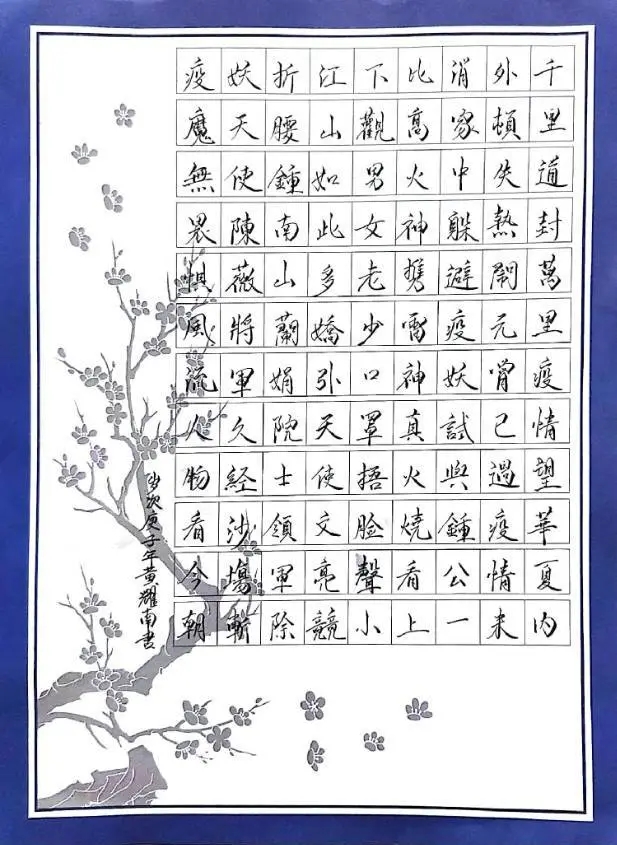 千里道封萬里疫情望華夏内
外頓失熱鬧元宵已過疫情未
消家中躲避疫妖試與鍾公一
比高火神携雷神真火燒看上
下觀男女老少口罩捂脸聲小
江山如此多嬌引天使文亮競
折腰鍾南山蘭娟院士領軍除
妖天使陳薇將軍久經沙場斬
疫魔無畏懼風流人物看今朝
歲次庚子年黄耀南書